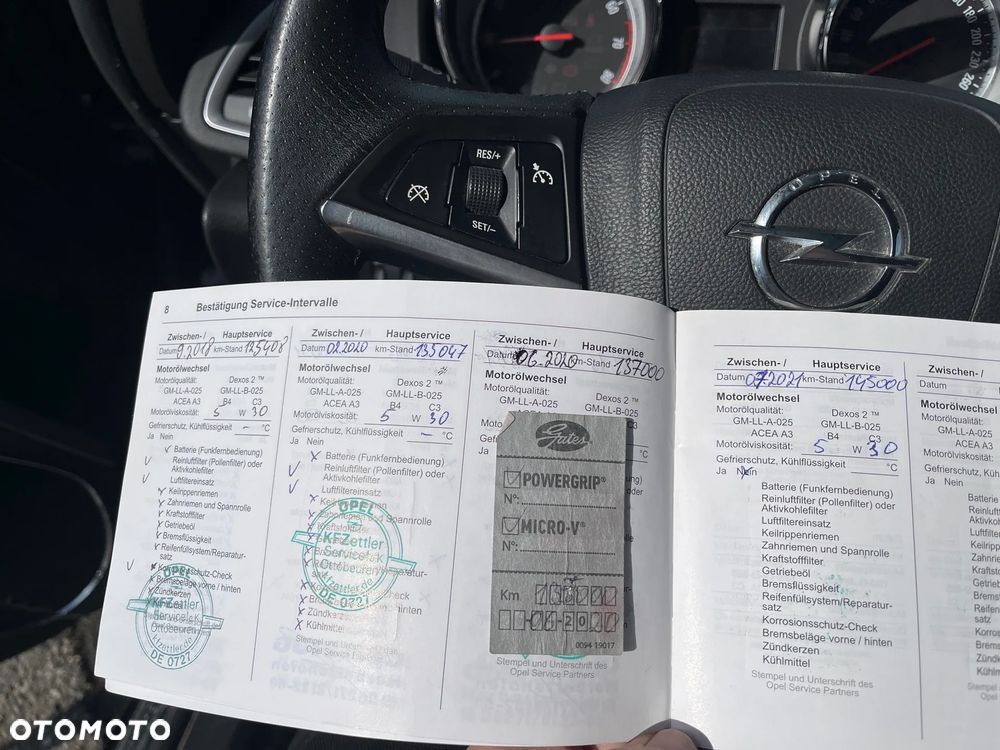 RES/+
SET/–
60
70
80
160
180
200
230
260
OPEL
8 Bestätigung Service-Intervalle
Zwischen-/ Hauptservice
Datum 9.2018 km-Stand 125408
Motorölwechsel
Motorölqualität: Dexos 2 ™
GM-LL-A-025 GM-LL-B-025
ACEA A3 B4 C3
Motorölviskosität: 5 W 30
Gefrierschutz, Kühlflüssigkeit – °C
Ja Nein
Batterie (Funkfernbedienung)
Reinluftfilter (Pollenfilter) oder
Aktivkohlefilter
Luftfiltereinsatz
Keilrippenriemen
Zahnriemen und Spannrolle
Kraftstofffilter
Getriebeöl
Bremsflüssigkeit
Reifenfüllsystem/Reparatur-
satz
Korrosionsschutz-Check
Bremsbeläge vorne / hinten
Zündkerzen
OPEL
Zettler
Service
Ottobeuren
kfzettler.de
DE 0727
Zwischen-/ Hauptservice
Datum 02.2020 km-Stand 135047
Motorölwechsel
Motorölqualität: Dexos 2 ™
GM-LL-A-025 GM-LL-B-025
ACEA A3 B4 C3
Motorölviskosität: 5 W 30
Gefrierschutz, Kühlflüssigkeit – °C
Ja Nein
Batterie (Funkfernbedienung)
Reinluftfilter (Pollenfilter) oder
Aktivkohlefilter
Luftfiltereinsatz
Spannrolle
hinten
Zündk
Kühlmittel
Stempel und Unterschrift des
Opel Service Partners
OPEL
KFZettler
Service
Ottobeuren
kfzettler.de
DE 0727
Zwischen-/ Hauptservice
Datum 06.2020 km-Stand 137000
Motorölwechsel
Motorölqualität: Dexos 2 ™
GM-LL-A-025 GM-LL-B-025
ACEA A3
Gefrie
°C
Ja
Gates
POWERGRIP®
N°:
MICRO-V®
N°:
Km
0094 19017
Stempel und Unterschrift des
Opel Service Partners
Zwischen-/ Hauptservice
Datum 07.2021 km-Stand 145000
Motorölwechsel
Motorölqualität: Dexos 2 ™
GM-LL-A-025 GM-LL-B-025
ACEA A3 B4 C3
Motorölviskosität: 5 W 30
Gefrierschutz, Kühlflüssigkeit °C
Ja Nein
Batterie (Funkfernbedienung)
Reinluftfilter (Pollenfilter) oder
Aktivkohlefilter
Luftfiltereinsatz
Keilrippenriemen
Zahnriemen und Spannrolle
Kraftstofffilter
Getriebeöl
Bremsflüssigkeit
Reifenfüllsystem/Reparatur-
satz
Korrosionsschutz-Check
Bremsbeläge vorne / hinten
Zündkerzen
Kühlmittel
Stempel und Unterschrift des
Opel Service Partners
Zwischen-/
Datum
Motorölwechsel
Motorölqualität:
GM-LL-A-025
ACEA A3
Motorölviskosität:
Gefrierschutz, Kü
Ja Nein
Batterie
Reinluftf
Aktivkohl
Luftfilter
Keilripp
Zahnrie
Kraftsto
Getrieb
Brems
Reifen
satz
Korros
Brems
Zündk
Kühlm
OTOMOTO